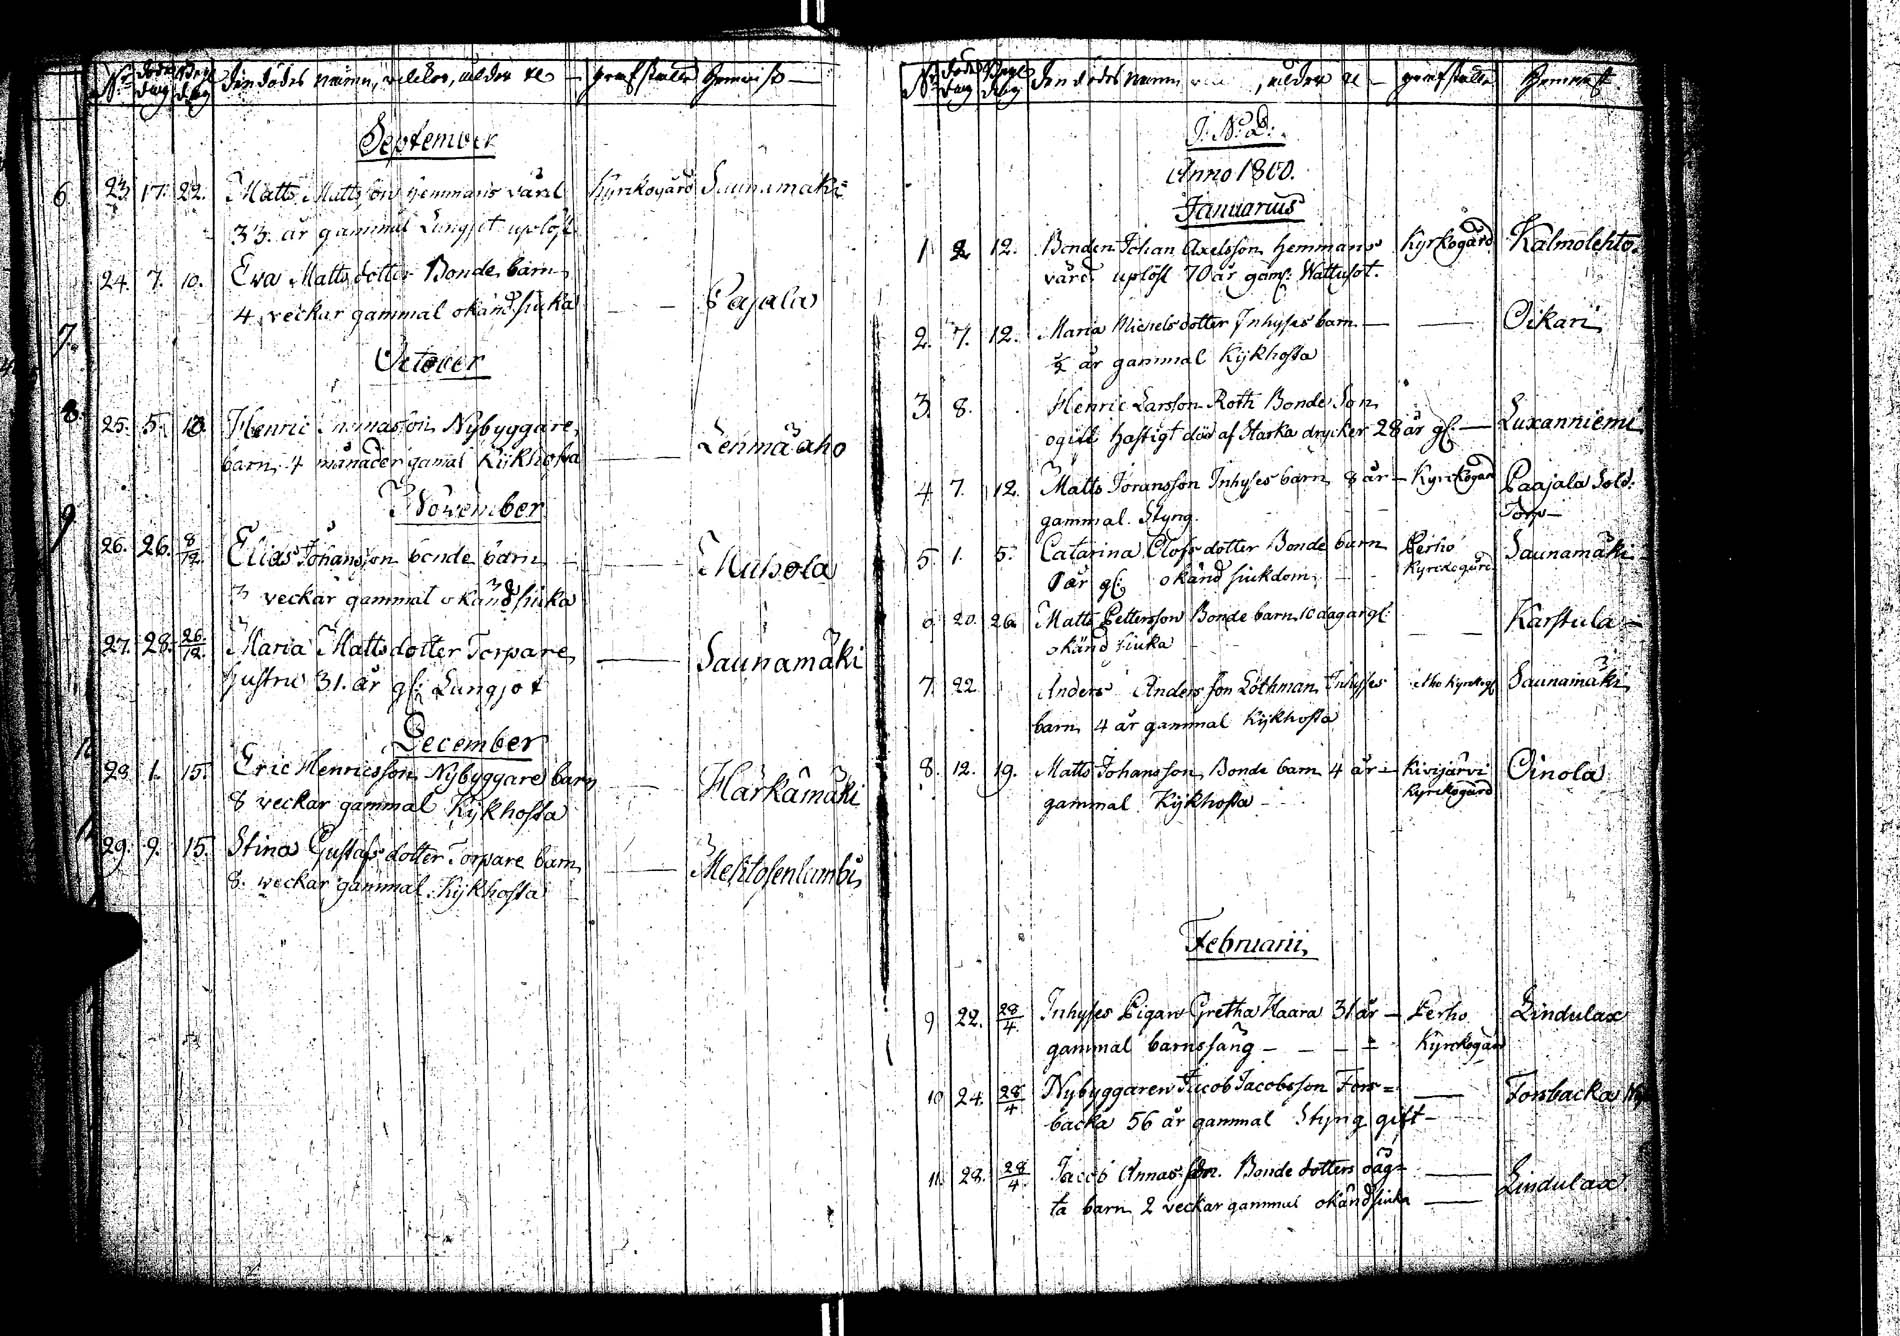 No döds dag Begr dag den dödes namn, vilckor, ålder &c grafställe Hemvist
September
6 23. 17. 22. Matts Mattsson hemmans värd Kyrckogård Saunamäki
33. år gammal Lungsot uplöst
24. 7. 10. Eva Mattsdotter Bonde barn
4 veckar gammal okänd siuka — — Pajala
7.
October
8. 25. 5. 10. Henric Nybyggare
barn 4 månader gamal Kijkhosta — Lehmäaho
November
9
26. 26. 8/12. Elias Johansson bonde barn — Muhola
3 veckar gammal okänd siuka
27. 28. 26/12. Maria Mattsdotter Torpare — Saunamäki
hustru 31. år gl: Lungsot
December
28. 1. 15. Eric Henricsson Nybyggare barn
8 veckar gammal Kijkhosta — Härkämäki
29. 9. 15. Stina Gustafsdotter Torpare barn
8. veckar gammal Kijkhosta —
No döds dag Begr dag den dödes namn, ålder &c grafställe Hemvist
J. N: D:
Anno 1800.
Januarius
1 2 12. Bonden Johan Axelsson hemmans Kyrkogård Kalmolehto.
värd uplöst 70 år gam: Wattusot.
2. 7. 12. Maria Michelsdotter Inhyses barn — — Oikari
½ år gammal Kijkhosta
3. 8. Henric Larsson Roth Bonde Son
ogift hastigt död af starka drycker 28 år gl — Luxanniemi
4 7. 12. Matts Göransson Inhyses barn 8 år — Kyrckogård Paajala Sold:
gammal. Styng. Torp —
5 1. 5. Catarina Olofsdotter Bonde barn Perho Saunamäki
år gl: okänd siukdom Kyrckogård
6 20. 26. Matts Pettersson Bonde barn 10 dagar gl: — — Karstula —
okänd siuka
7. 22 Anders Andersson Löthman Inhyses Saunamäki
barn 4 år gammal Kijkhosta
8. 12. 19. Matts Johansson Bonde barn 4 år — Kivijärvi Oinola
gammal Kijkhosta — Kyrckogård
Februarii
9 22. 28/4 Inhyses Pigan Gretha Haara 31 år — Perho Lindulax
gammal barnssäng — — — Kyrckogård
10 24. 28/4 Nybyggaren Jacob Jacobsson Fors= — Forsbacka
backa 56 år gammal Styng gift —
11. 28. 28/4 Jacob Annas son. Bonde dotters oäg= —
ta barn 2 veckar gammal okänd siuka — Lindulax